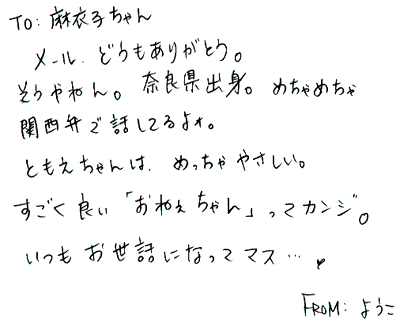 TO: 麻衣子ちゃん
メール どうもありがとう。
そうやねん。奈良県出身。めちゃめちゃ
関西弁で話してるよォ。
ともえちゃんは、めっちゃやさしい。
すごく良い「おねぇちゃん」ってカンジ。
いつもお世話になってマス…♥
FROM: ようこ